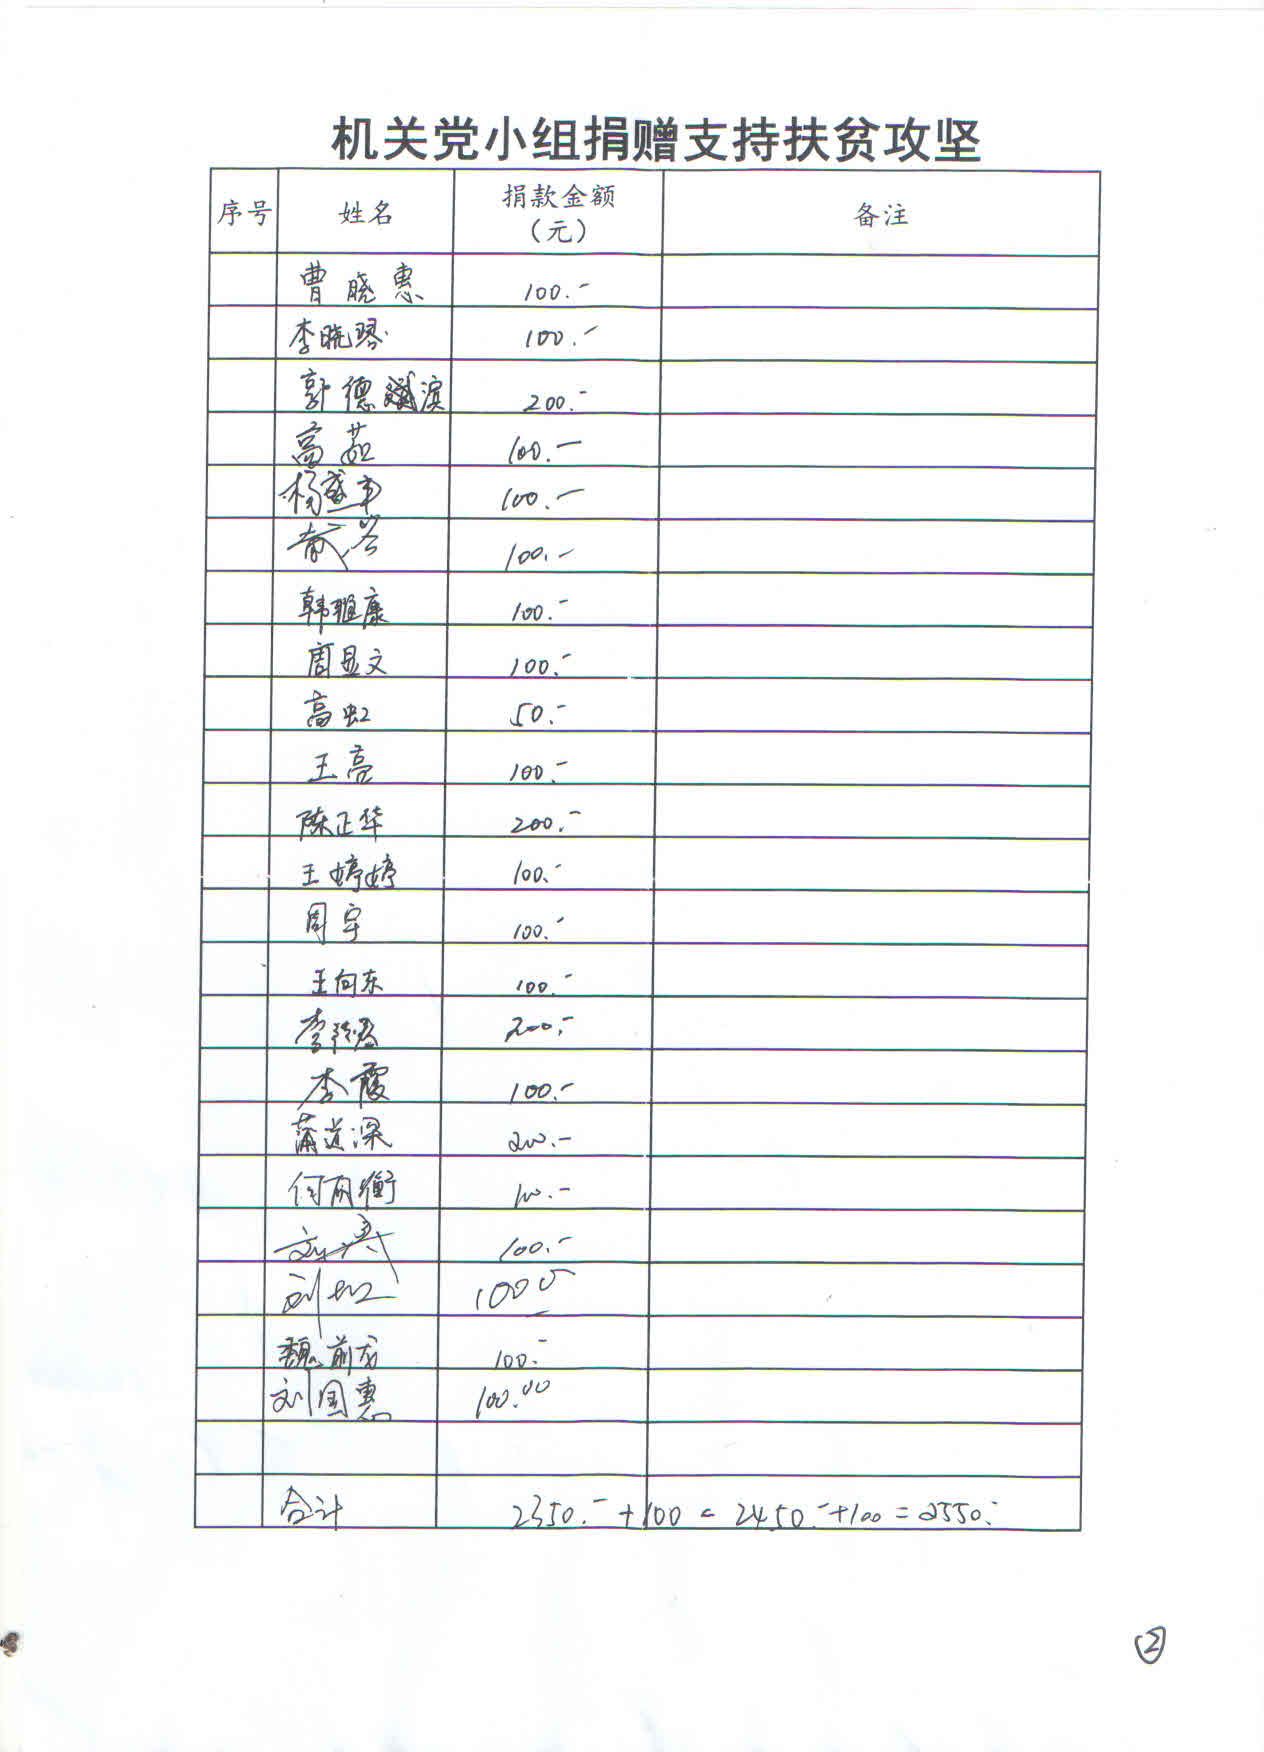 机关党小组捐赠支持扶贫攻坚
序号 姓名 捐款金额(元) 备注
曹晓惠 100.-
李晓琴 100.-
郭德滨 200.-
高茹 100.-
杨盛丰 100.-
100.-
韩雅康 100.-
周显文 100.-
高虹 50.-
王亮 100.-
陈正华 200.-
王婷婷 100.-
周宇 100.-
王向东 100.-
李 200.-
李霞 100.-
蒲道深 200.-
何雨衡 100.-
刘 100.-
刘红 100
魏前龙 100.-
刘国惠 100.00
合计 2350.- + 100 = 2450.- + 100 = 2550.-
②